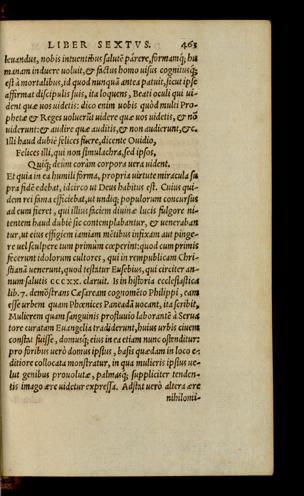 LIBER SEXTVS. 463
leuandus, nobis intuentibus salutē párere, formamq́; hu
manam induere uoluit, & factus homo uisus cognitusq́;
est à mortalibus, id quod nunquã antea patuit, sicut ipse
affirmat discipulis suis, ita loquens, Beati oculi qui ui-
dent quæ uos uidetis: dico enim uobis quòd multi Pro-
phetæ & Reges uoluerũt uidere quæ uos uidetis, & nõ
uiderunt: & audire quæ auditis, & non audierunt, &c.
Illi haud dubiè felices fuere, dicente Ouidio,
Felices illi, qui non simulachra, sed ipsos,
Quiq́; deûm coràm corpora uera uident.
Et quia in ea humili forma, propria uirtute miracula su
pra fidē edebat, idcirco ut Deus habitus est. Cuius qui-
dem rei fama efficiebat, ut undiq; populorum concursus
ad eum fieret, qui illius faciem diuinæ lucis fulgore ni-
tentem haud dubiè sic contemplabantur, & ueneraban
tur, ut eius effigiem iamiam mētibus infixam aut pinge-
re uel sculpere tum primùm cœperint: quod cum primis
fecerunt idolorum cultores, qui in rempublicam Chri-
stianã uenerunt, quod testãtur Eusebius, qui circiter an-
num salutis CCCXX. claruit. Is in historia ecclesiastica
lib. 7. demõstrans Cæsaream cognomēto Philippi, eam
esse urbem quam Phœnices Paneadã uocant, ita scribit,
Mulierem quam sanguinis profluuio laborantē à Serua
tore curatam Euangelia tradiderunt, huius urbis ciuem
constat fuisse, domusq́; eius in ea etiam nunc ostenditur:
pro foribus uerò domus ipsius, basis quædam in loco e-
ditiore collocata monstratur, in qua mulieris ipsius ue-
lut genibus prouolutæ, palmasq́; suppliciter tenden-
tis imago ære uidetur expressa. Adstat uerò altera ære
nihilomi-